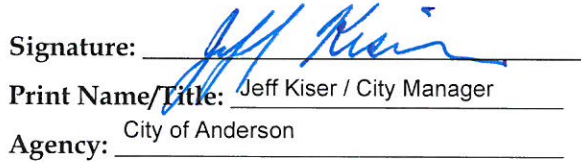 Signature: Jeff Kiser
Print Name/Title: Jeff Kiser / City Manager
Agency: City of Anderson